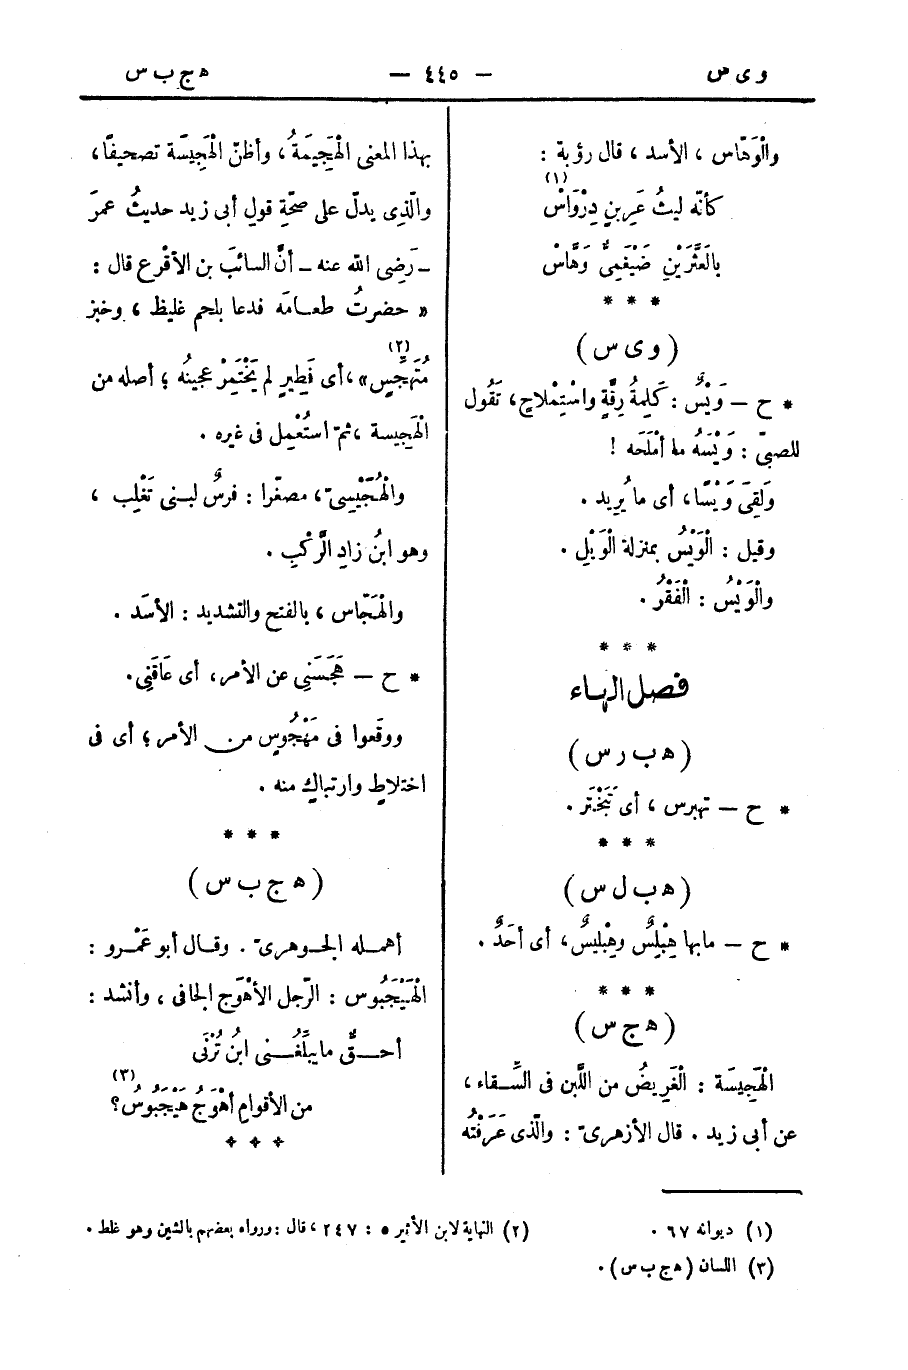 وى س
— ٤٤٥ —
ه ج ب س
والْوَهّاس ، الأسد ، قال رؤبة :
كأنّه ليثُ عَرِينٍ دِرْوَاسْ (١)
بالعَثَّرَيْنِ ضَيْغَمِىٌّ وَهَّاسْ
* * *
( وى س )
* ح — وَيْسٌ : كَلِمةُ رِقَّةٍ واسْتِمْلاحٍ ، تَقُول
للصبىّ : وَيْسَهُ ما أَمْلَحَه !
ولَقِىَ وَيْسًا ، أى ما يُريد .
وقيل : الْوَيْسُ بمنزلة الْوَيْلِ .
والْوَيْسُ : الْفَقْرُ .
* * *
فصل الهاء
( ه ب ر س )
* ح — تهبرس ، أى تَبَخْتَر .
* * *
( ه ب ل س )
* ح — مابها هِبْلِسٌ وهِبْلِيسٌ ، أى أحَدٌ .
* * *
( ه ج س )
الْهَجِيسَة : الْغَرِيضُ من اللّبن فى السِّقاء ،
عن أبى زيد . قال الأزهرىّ : والّذى عَرَفْتُه
بهذا المعنى الْهَجِيمَةُ ، وأظنّ الْهَجِيسَة تصحيفًا ،
والّذى يدلّ على صحّةِ قولِ أبى زيد حديثُ عمرَ
ـ رَضِى الله عنه ـ أنَّ السائبَ بن الأقْرع قال :
« حضرتُ طعامَه فدعا بلحمٍ غليظ ، وخبز
مُتَهَجِّسٍ » (٢) ، أى فَطِيرٍ لم يَخْتَمِرْ عجينُه ؛ أصله من
الْهَجِيسة ، ثمّ استُعْمِل فى غيره .
والْهُجَيْسِىّ ، مصغّرا : فرسٌ لبنى تَغْلِب ،
وهو ابنُ زادِ الرَّكْبِ .
والْهَجّاس ، بالفتح والتشديد : الأسَد .
* ح — هَجَسَنِى عن الأمر ، أى عَاقَنِى .
ووقَعوا فى مَهْجُوسٍ من الأمر ؛ أى فى
اختلاطٍ وارتباكٍ منه .
* * *
( ه ج ب س )
أهمله الجوهرىّ . وقال أبو عَمْرو :
الْهَيْجَبُوس : الرّجل الأهْوَج الجافى ، وأنشد :
أحقٌّ ما يبلِّغُنى ابنُ تُرْنَى
من الأقوام أهْوَجُ هَيْجَبُوسُ ؟ (٣)
* * *
(١) ديوانه ٦٧ .
(٢) النهاية لابن الأثير ٥ : ٢٤٧ ، قال : ورواه بعضهم بالشين وهو غلط .
(٣) اللسان ( ه ج ب س ) .